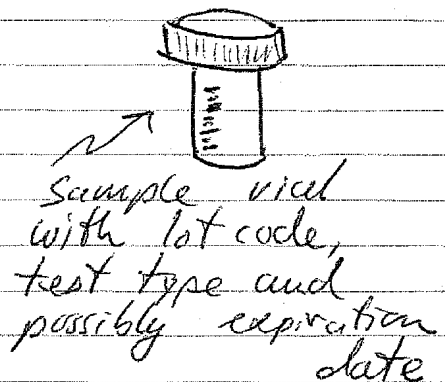 sample vial
with lot code,
test type and
possibly expiration
date